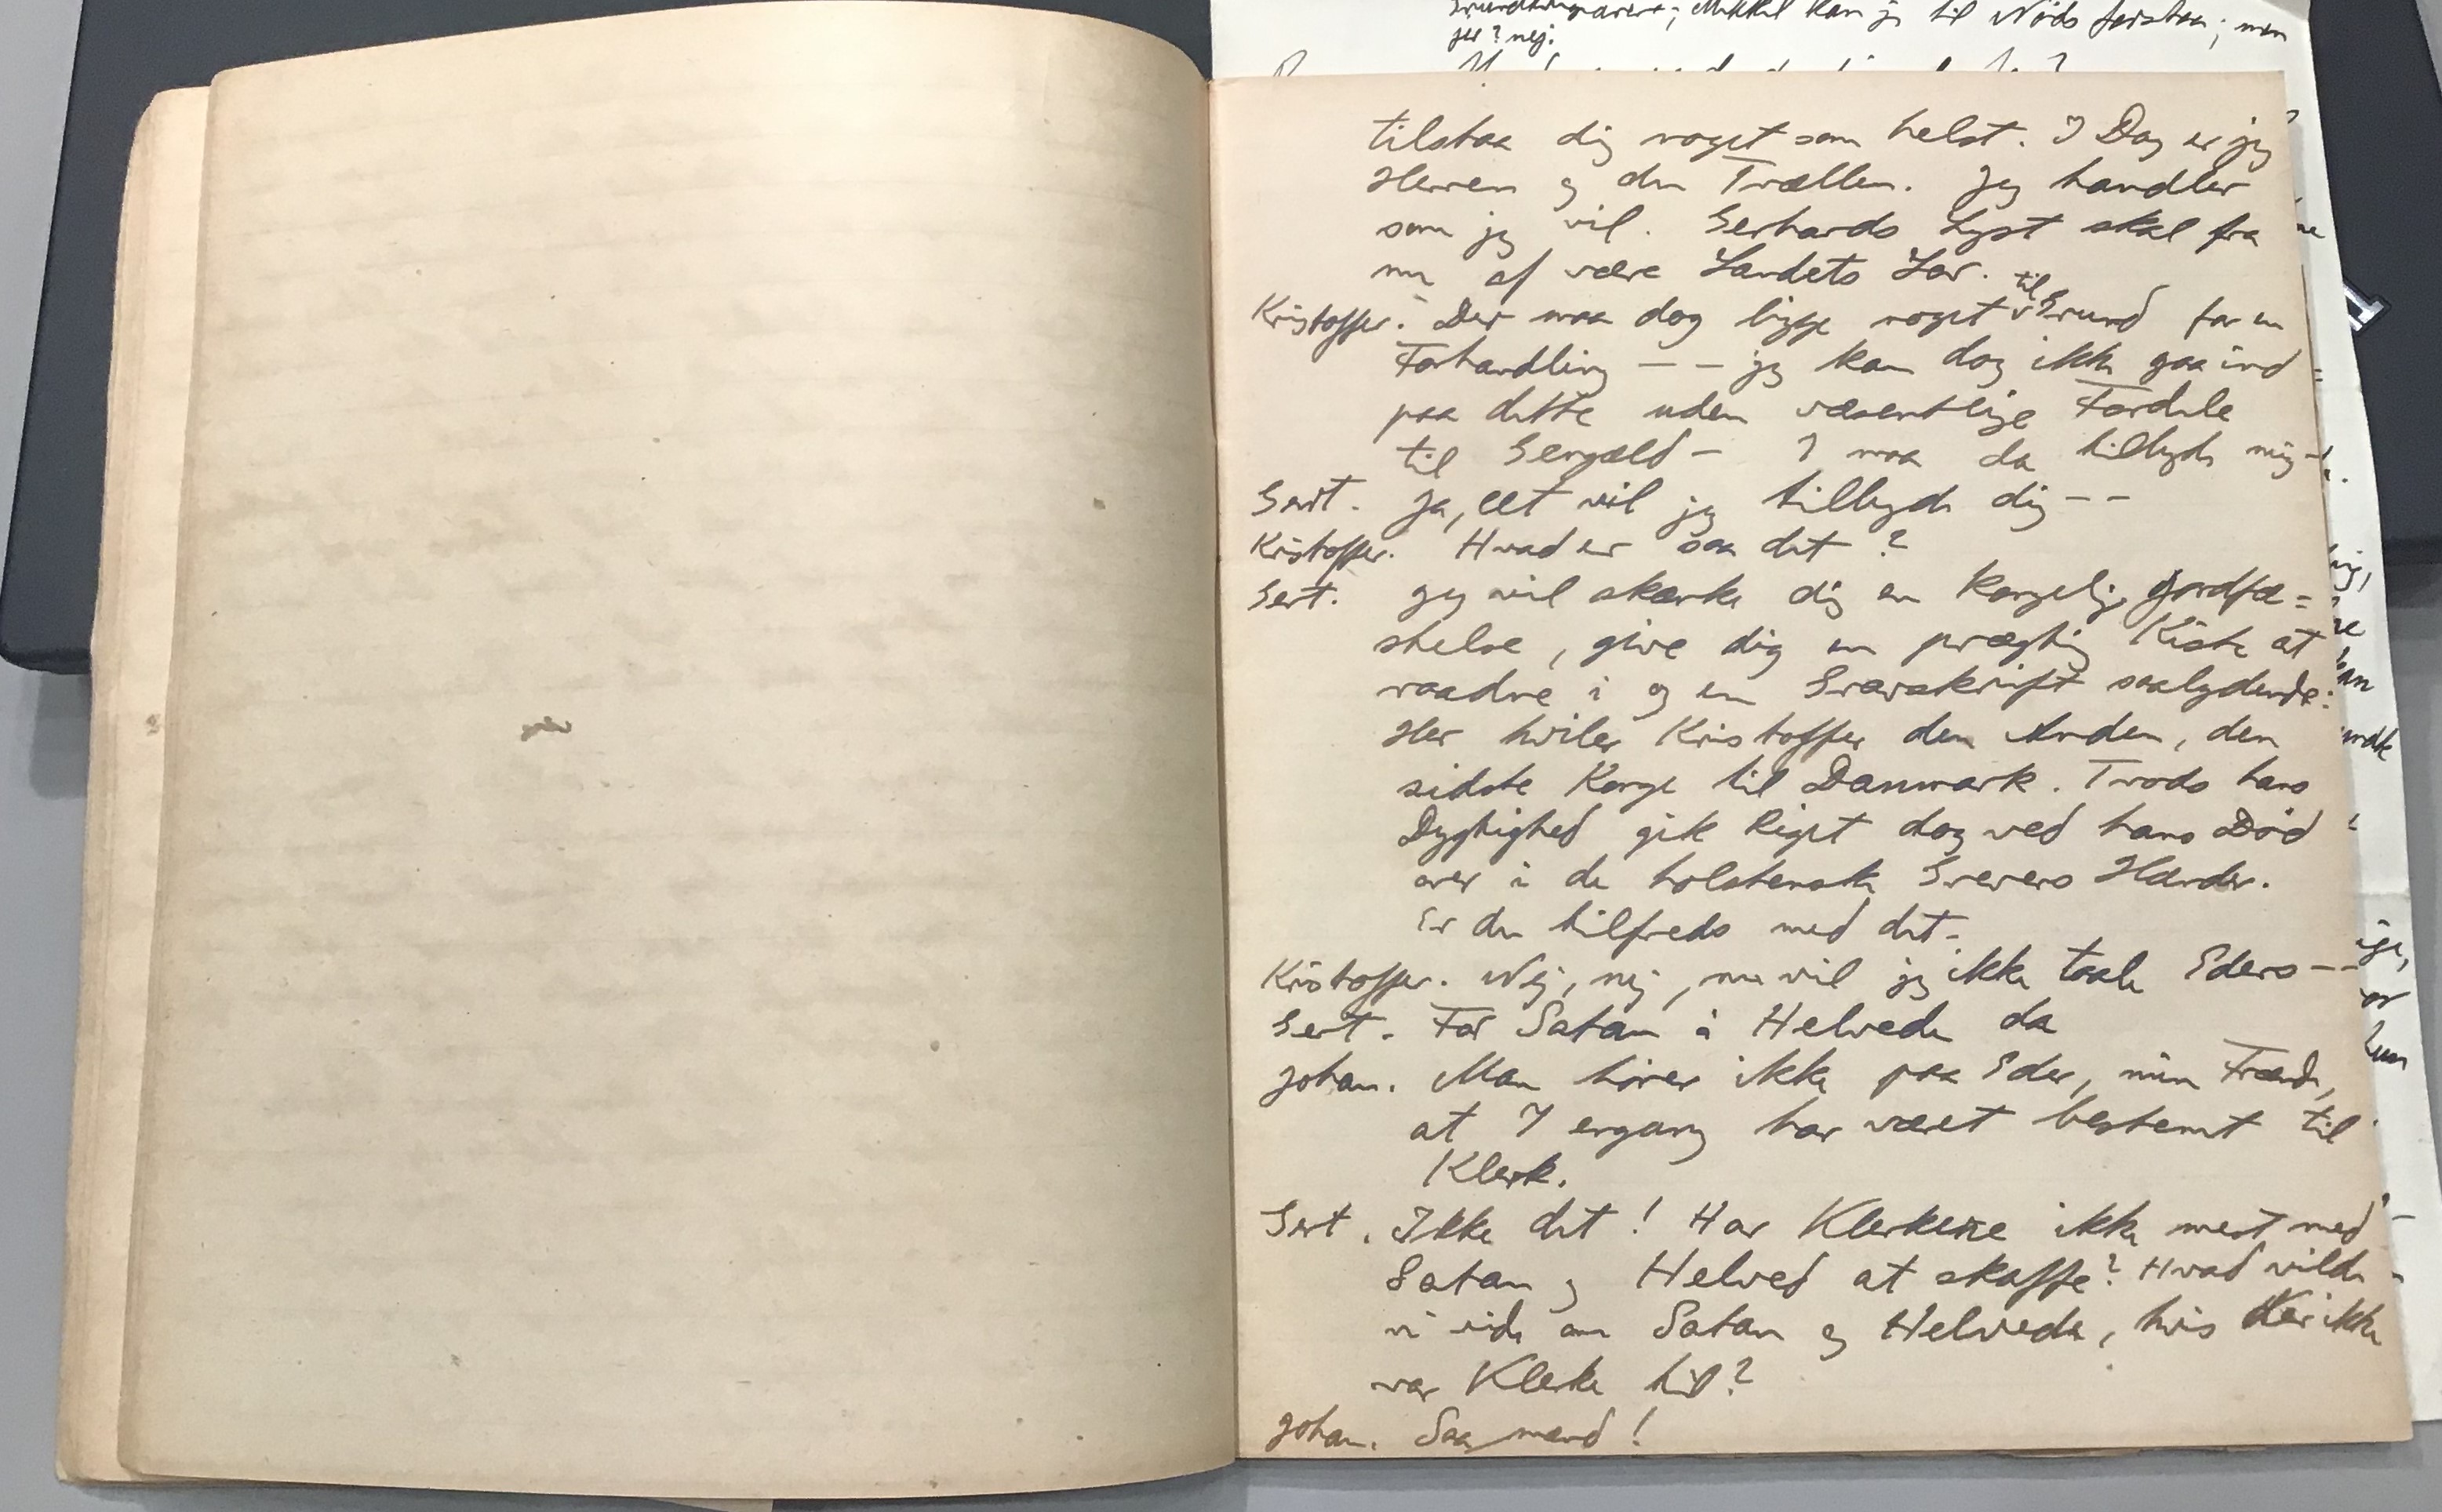 til Nöds forstaa; men
jer? nej.
tilstaa dig noget som helst. I Dag er jeg
Herren og du Trællen. Jeg handler
som jeg vil. Gerhards Lyst skal fra
nu af være Landets Lov.
Kristoffer. Der maa dog ligge noget til Grund for en
Forhandling — — jeg kan dog ikke gaa ind
paa dette uden væsentlige Fordele
til Gengæld — I maa da tilbyde mig —
Gert. Ja, eet vil jeg tilbyde dig — —
Kristoffer. Hvad er saa det?
Gert. Jeg vil skænke dig en kongelig Jordfæ=
stelse, give dig en prægtig Kiste at
raadne i og en Gravskrift saalydende:
Her hviler Kristoffer den Anden, den
sidste Konge til Danmark. Trods hans
Dygtighed gik Riget dog ved hans Död
over i de holstenske Grevers Hænder.
Er du tilfreds med det.
Kristoffer. Nej, nej, nu vil jeg ikke taale Eders — —
Gert. For Satan i Helvede da
Johan. Man hörer ikke paa Eder, min Frænde,
at I engang har været bestemt til
Klerk.
Gert. Ikke det! Har Klerkene ikke mest med
Satan og Helved at skaffe? Hvad vilde
vi vide om Satan og Helvede, hvis der ikke
var Klerke til?
Johan. Saa mænd!